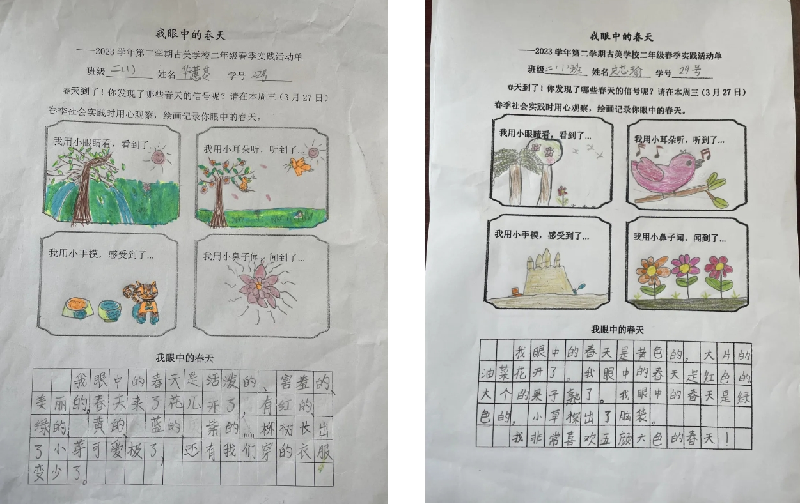 我眼中的春天
——2023学年第二学期古美学校二年级春季实践活动单
班级 二(1) 姓名 学号
春天到了！你发现了哪些春天的信号呢？请在本周三（3月27日）
春季社会实践时用心观察，绘画记录你眼中的春天。
我用小眼睛看，看到了...
我用小耳朵听，听到了...
我用小手摸，感受到了...
我用小鼻子闻，闻到了...
我眼中的春天
我眼中的春天是活泼的、害羞的、
美丽的。春天来了花儿开了，有红的、
绿的、黄的、蓝的、紫的……柳树长出
了小芽可爱极了，还有我们穿的衣服
变少了。
我眼中的春天
——2023学年第二学期古美学校二年级春季实践活动单
班级 二(1)班 姓名 学号 29号
春天到了！你发现了哪些春天的信号呢？请在本周三（3月27日）
春季社会实践时用心观察，绘画记录你眼中的春天。
我用小眼睛看，看到了...
我用小耳朵听，听到了...
我用小手摸，感受到了...
我用小鼻子闻，闻到了...
我眼中的春天
我眼中的春天是黄色的，大片的
油菜花开了。我眼中的春天是红色的，
大个的果子熟了。我眼中的春天是绿
色的，小草探出了脑袋。
我非常喜欢五颜六色的春天！